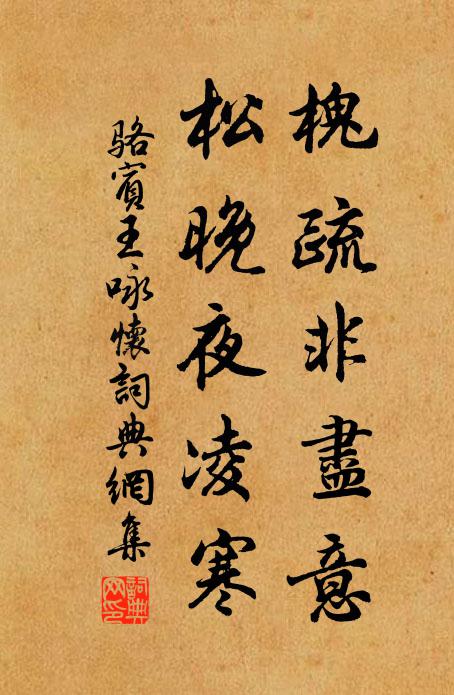 槐疏非盡意
松晚夜凌寒
駱賓王詠懷詞典網集
詞典网印